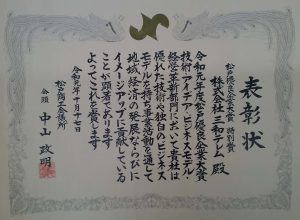 表彰状
松戸優良企業大賞 特別賞
株式会社 三和テレム 殿
令和元年度松戸優良企業大賞
技術・アイデア・ビジネスモデル・
経営革新部門において貴社は
優れた技術や独自のビジネス
モデルを持ち事業活動を通して
地域経済の発展ならびに
イメージアップに貢献している
ことが顕著であります
よってこれを賞します
令和元年十月十七日
松戸商工会議所
会頭 中山政明